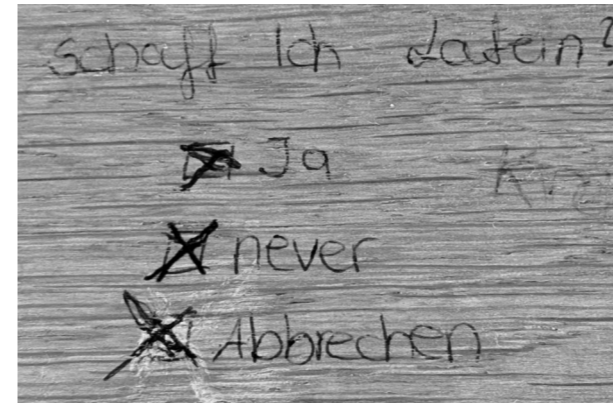 Schaff Ich Latein?
Ja
never
Abbrechen